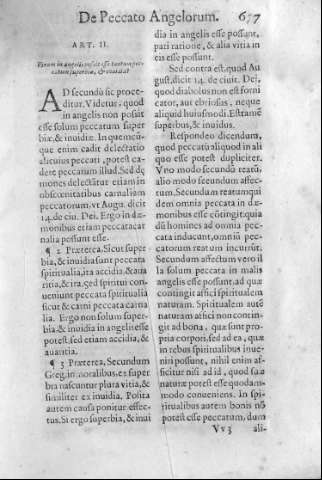 De Peccato Angelorum. 677
ART. II.
Vtrum in angelis possit esse tantum pec-
catum superbiæ, & inuidiæ?
AD secundū sic proce-
ditur. Videtur, quod
in angelis non possit
esse solum peccatum super
biæ, & inuidiæ. In quemcũ-
que enim cadit delectatio
alicuius peccati, potest ca-
dere peccatum illud. Sed dę
mones delectātur etiam in
obscœnitatibus carnalium
peccatorum, vt Augu. dicit
14. de ciui. Dei. Ergo in dæ
monibus etiam peccata car
nalia possunt esse.
¶ 2 Præterea, Sicut super-
bia, & inuidia sunt peccata
spiritualia, ita accidia, & aua
ritia, & ira. sed spiritui con-
ueniunt peccata spiritualia
sicut & carni peccata carna
lia. Ergo non solum super-
bia & inuidia in angelis esse
potest, sed etiam accidia, &
auaritia.
¶ 3 Præterea, Secundum
Greg. in moralibus, ex super
bia nascuntur plura vitia, &
similiter ex inuidia. Posita
autem causa ponitur effec-
tus. Si ergo superbia, & inui
dia in angelis esse possunt,
pari ratione, & alia vitia in
eis esse possunt.
Sed contra est, quod Au
gust. dicit 14. de ciuit. Dei,
quod diabolus non est forni
cator, aut ebriosus, neque
aliquid huiusmodi. Est tamē
superbus, & inuidus.
Respondeo dicendum,
quod peccatū aliquod in ali
quo esse potest dupliciter.
Vno modo secundū reatū,
alio modo secundum affec-
tum. Secundum reatum qui
dem omnia peccata in dæ
monibus esse cōtingit: quia
dū homines ad omnia pec-
cata inducunt, omniū pec-
catorum reatum incurrūt.
Secundum affectum vero il
la solum peccata in malis
angelis esse possunt, ad quæ
contingit affici spiritualem
naturam. Spiritualem autē
naturam affici non contin-
git ad bona, quæ sunt pro-
pria corpori, sed ad ea, quæ
in rebus spiritualibus inue-
niri possunt, nihil enim af-
ficitur nisi ad id, quod suæ
naturæ potest esse quodam-
modo conueniens. In spi-
ritualibus autem bonis nō
potest esse peccatum, dum
Vv 3 ali-